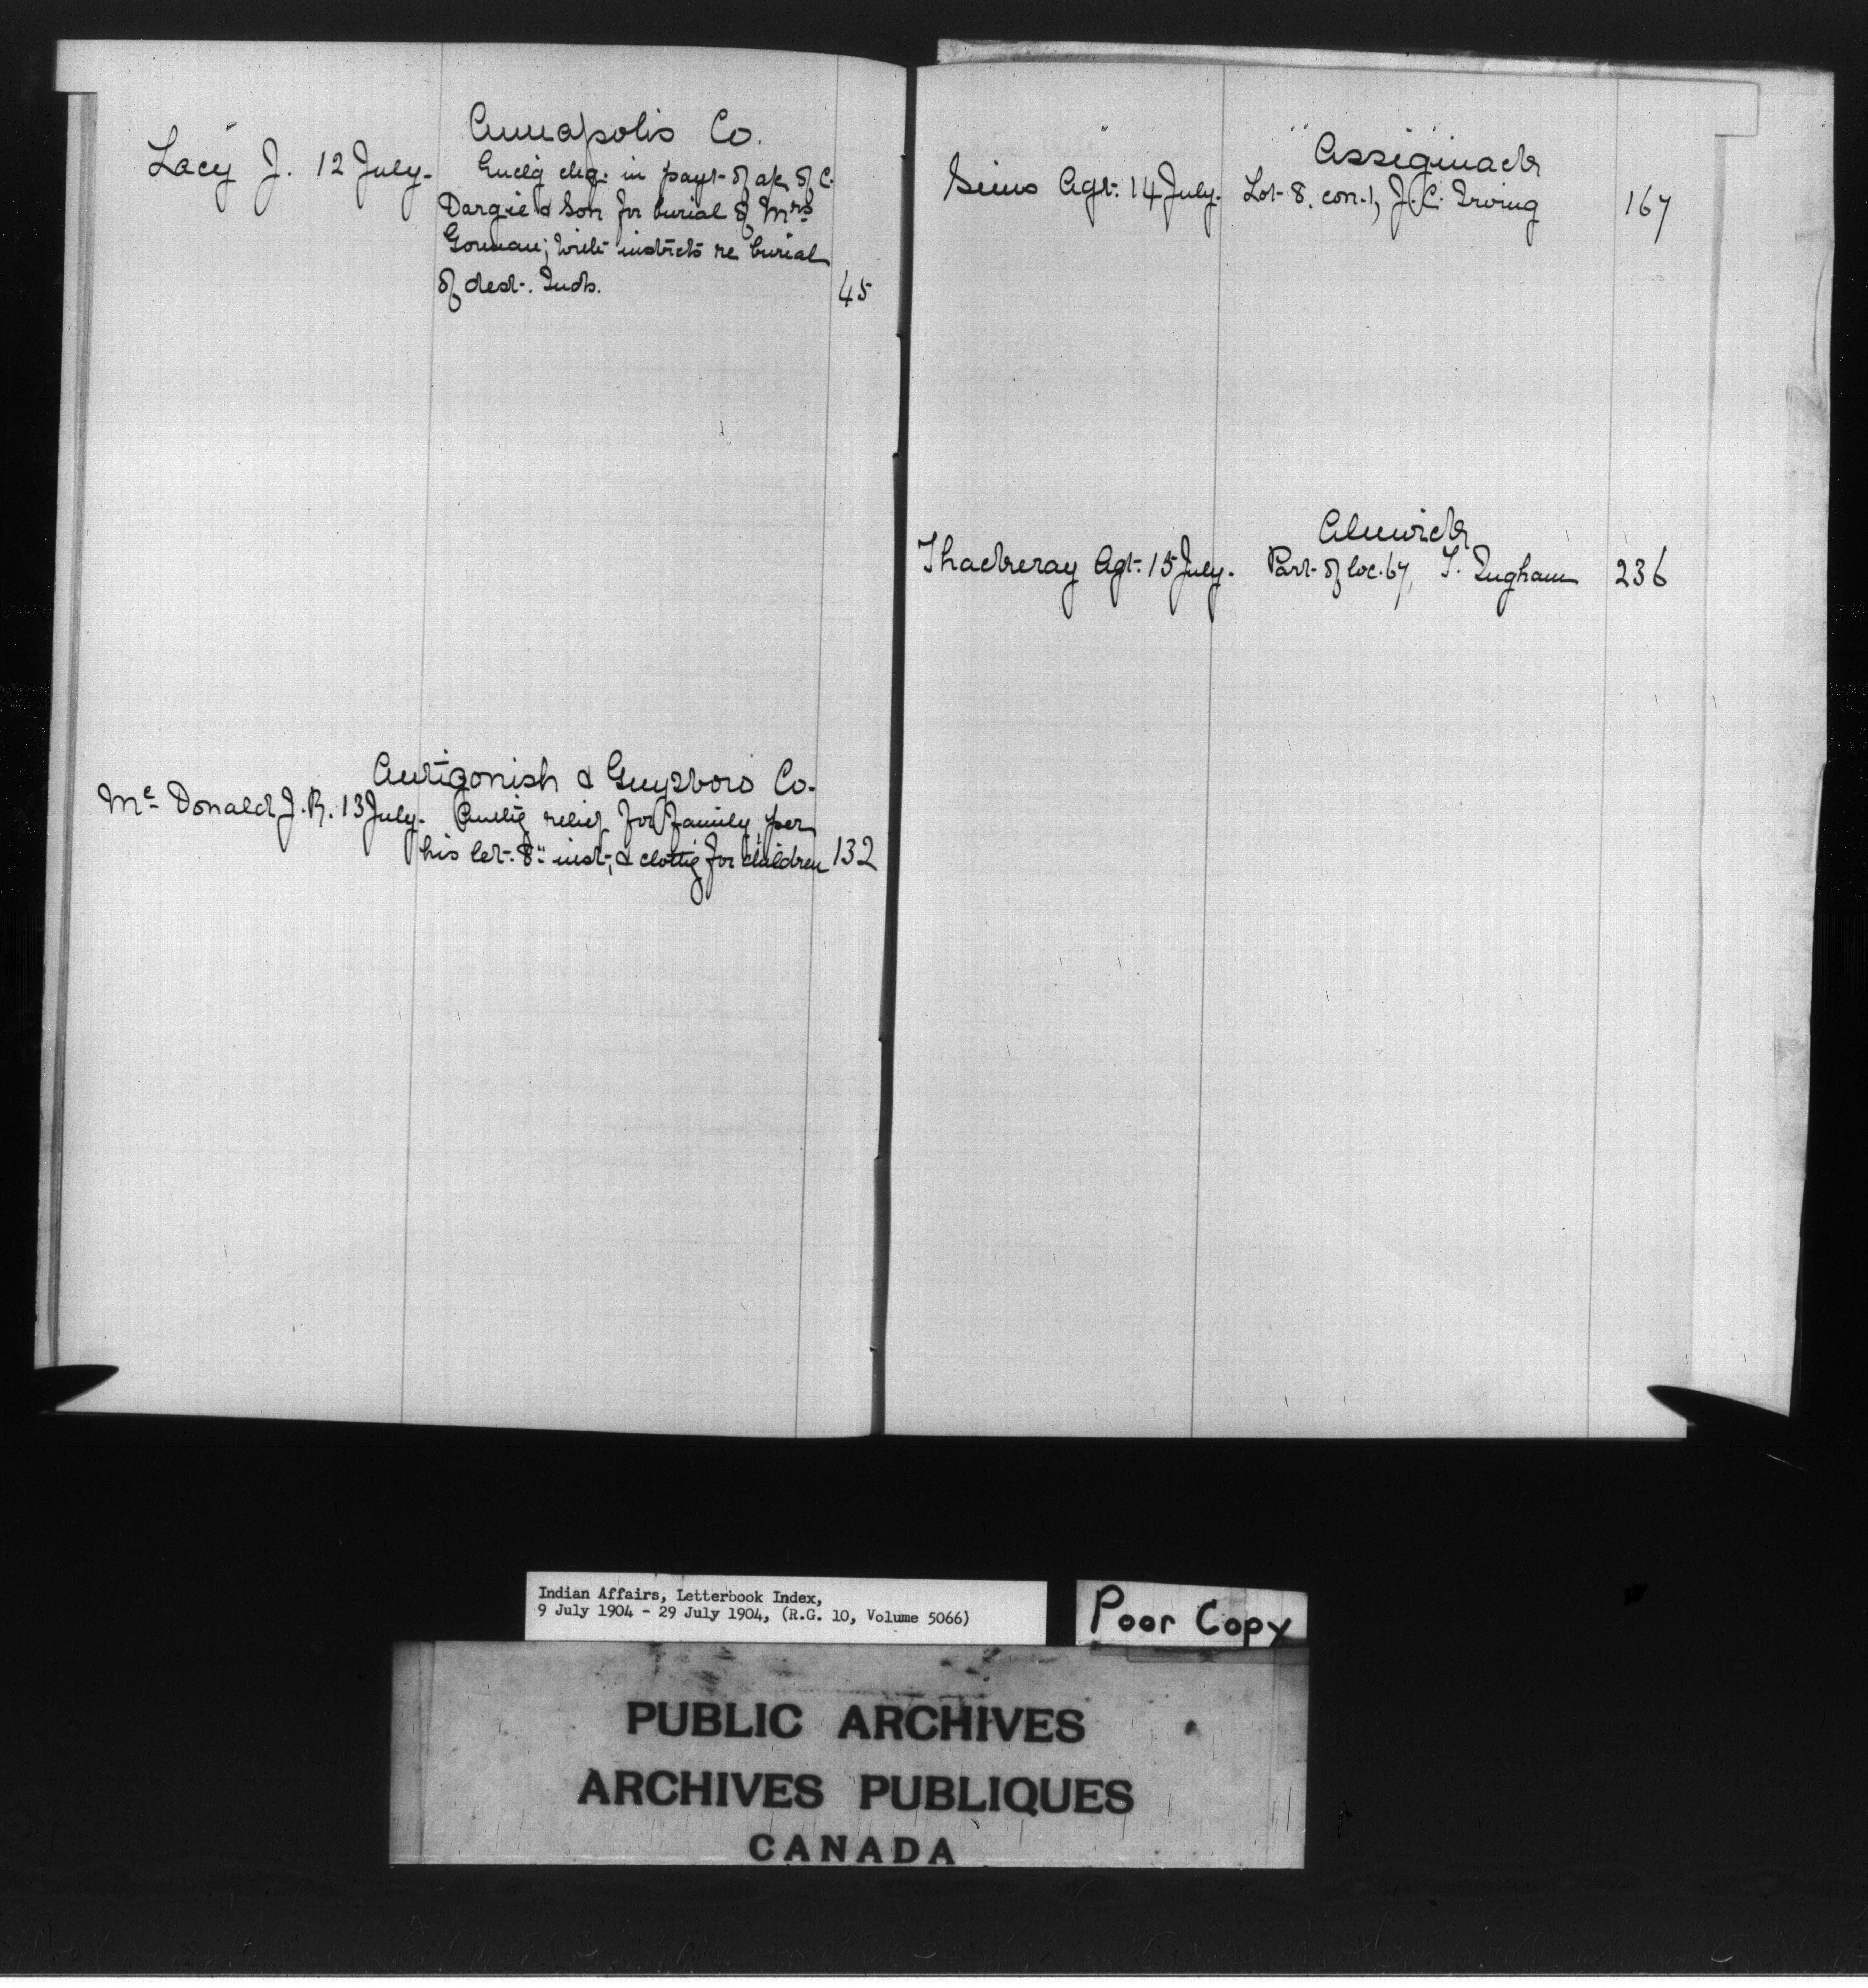 Annapolis Co.
Lacy J. 12 July. Enclg chq. in payt. of a/c of C.
Dargie & Son for burial of Mrs
Gorman; with instrcts re burial
of dest. Inds. 45
Antigonish & Guysboro Co.
Mc Donald J. R. 13 July. Authg relief for family per
his let. 8" inst; & clothg for children 132
Assiginack
Sims Agt. 14 July. Lot 8, con. 1, J. C. Irving 167
Alnwick
Thackeray Agt. 15 July. Part of loc. 67, T. Ingham 236
Indian Affairs, Letterbook Index,
9 July 1904 - 29 July 1904, (R.G. 10, Volume 5066)
Poor Copy
PUBLIC ARCHIVES
ARCHIVES PUBLIQUES
CANADA